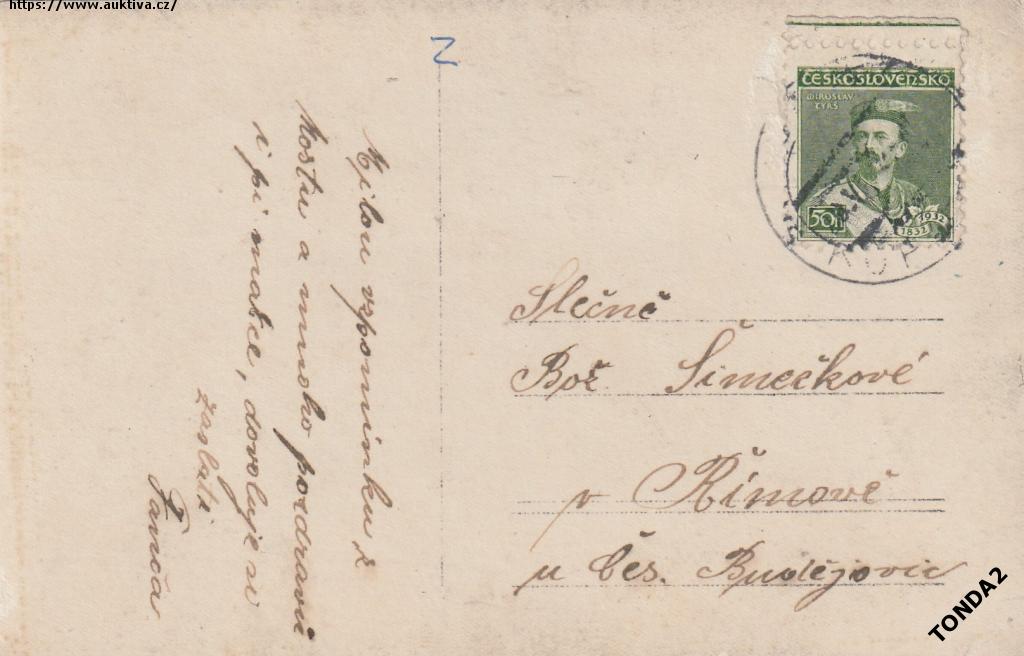 https://www.auktiva.cz/
Z
ČESKOSLOVENSKO
MIROSLAV
TYRŠ
50h
1832 1932
Slečně
Bož. Šimečkové
v Římově
u Čes. Budějovic
Milou vzpomínku z
Mostu a mnoho pozdravů
i pí matce, dovoluje si
zaslati
TONDA2